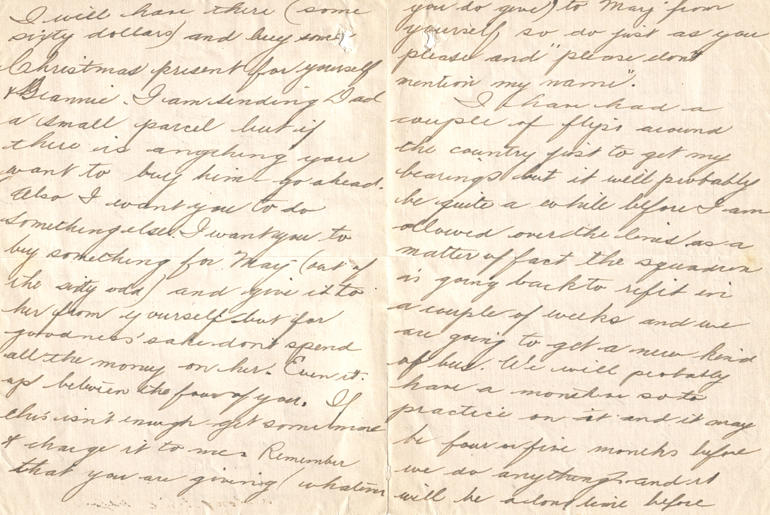 I will have there (some
sixty dollars) and buy some
Christmas present for yourself
& Jeannie. I am sending Dad
a small parcel but if
there is anything you
want to buy him - go ahead.
Also I want you to do
something else. I want you to
buy something for May (out of
the sixty odd) and give it to
her from yourself but for
goodness' sake don't spend
all the money on her. Even it
up between the four of you. If
this isn't enough get some more
& charge it to me. Remember
that you are giving (whatever
you do give) to May from
yourself, so do just as you
please and "please don't
mention my name".
I have had a
couple of flips around
the country just to get my
bearings but it will probably
be quite a while before I am
allowed over the lines as a
matter of fact the squadron
is going back to refit in
a couple of weeks and we
are going to get a new kind
of bus. We will probably
have a month or so to
practice on it and it may
be four or five months before
we do anything and it
will be a long time before